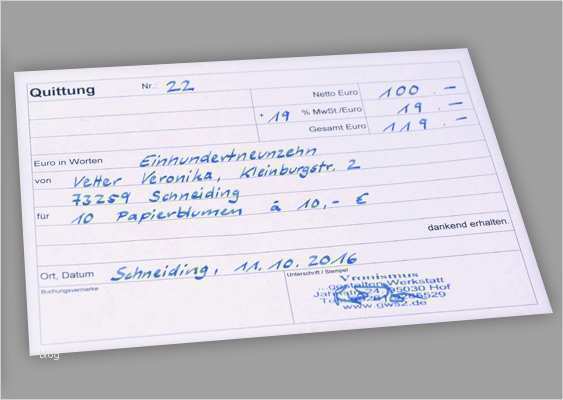 Quittung Nr.: 22
Netto Euro 100.-
+ 19 % MwSt./Euro 19.-
Gesamt Euro 119.-
Euro in Worten Einhundertneunzehn
von Vetter Veronika, Kleinburgstr. 2
73259 Schneiding
für 10 Papierblumen á 10,- €
dankend erhalten.
Ort, Datum Schneiding, 11.10.2016
Buchungsvermerke
Unterschrift / Stempel
Vronismus
Werkstatt
95030 Hof
www.gws2.de
blog